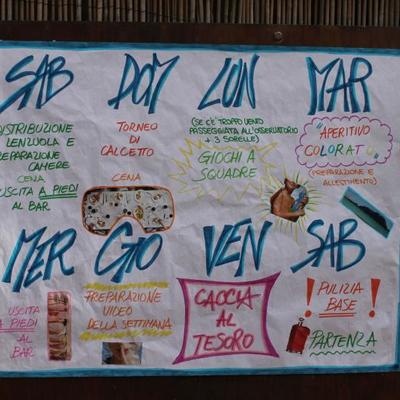 SAB
DISTRIBUZIONE
LENZUOLA E
PREPARAZIONE
CAMERE
CENA
USCITA A PIEDI
AL BAR
DOM
TORNEO
DI
CALCETTO
CENA
LUN
(SE C'È TROPPO VENTO
PASSEGGIATA ALL'OSSERVATORIO
+ 3 SORELLE)
GIOCHI A
SQUADRE
MAR
APERITIVO
COLORATO
(PREPARAZIONE E
ALLESTIMENTO)
MER
USCITA
A PIEDI
AL
BAR
GIO
PREPARAZIONE
VIDEO
DELLA SETTIMANA
VEN
CACCIA
AL
TESORO
SAB
! PULIZIA !
BASE
PARTENZA